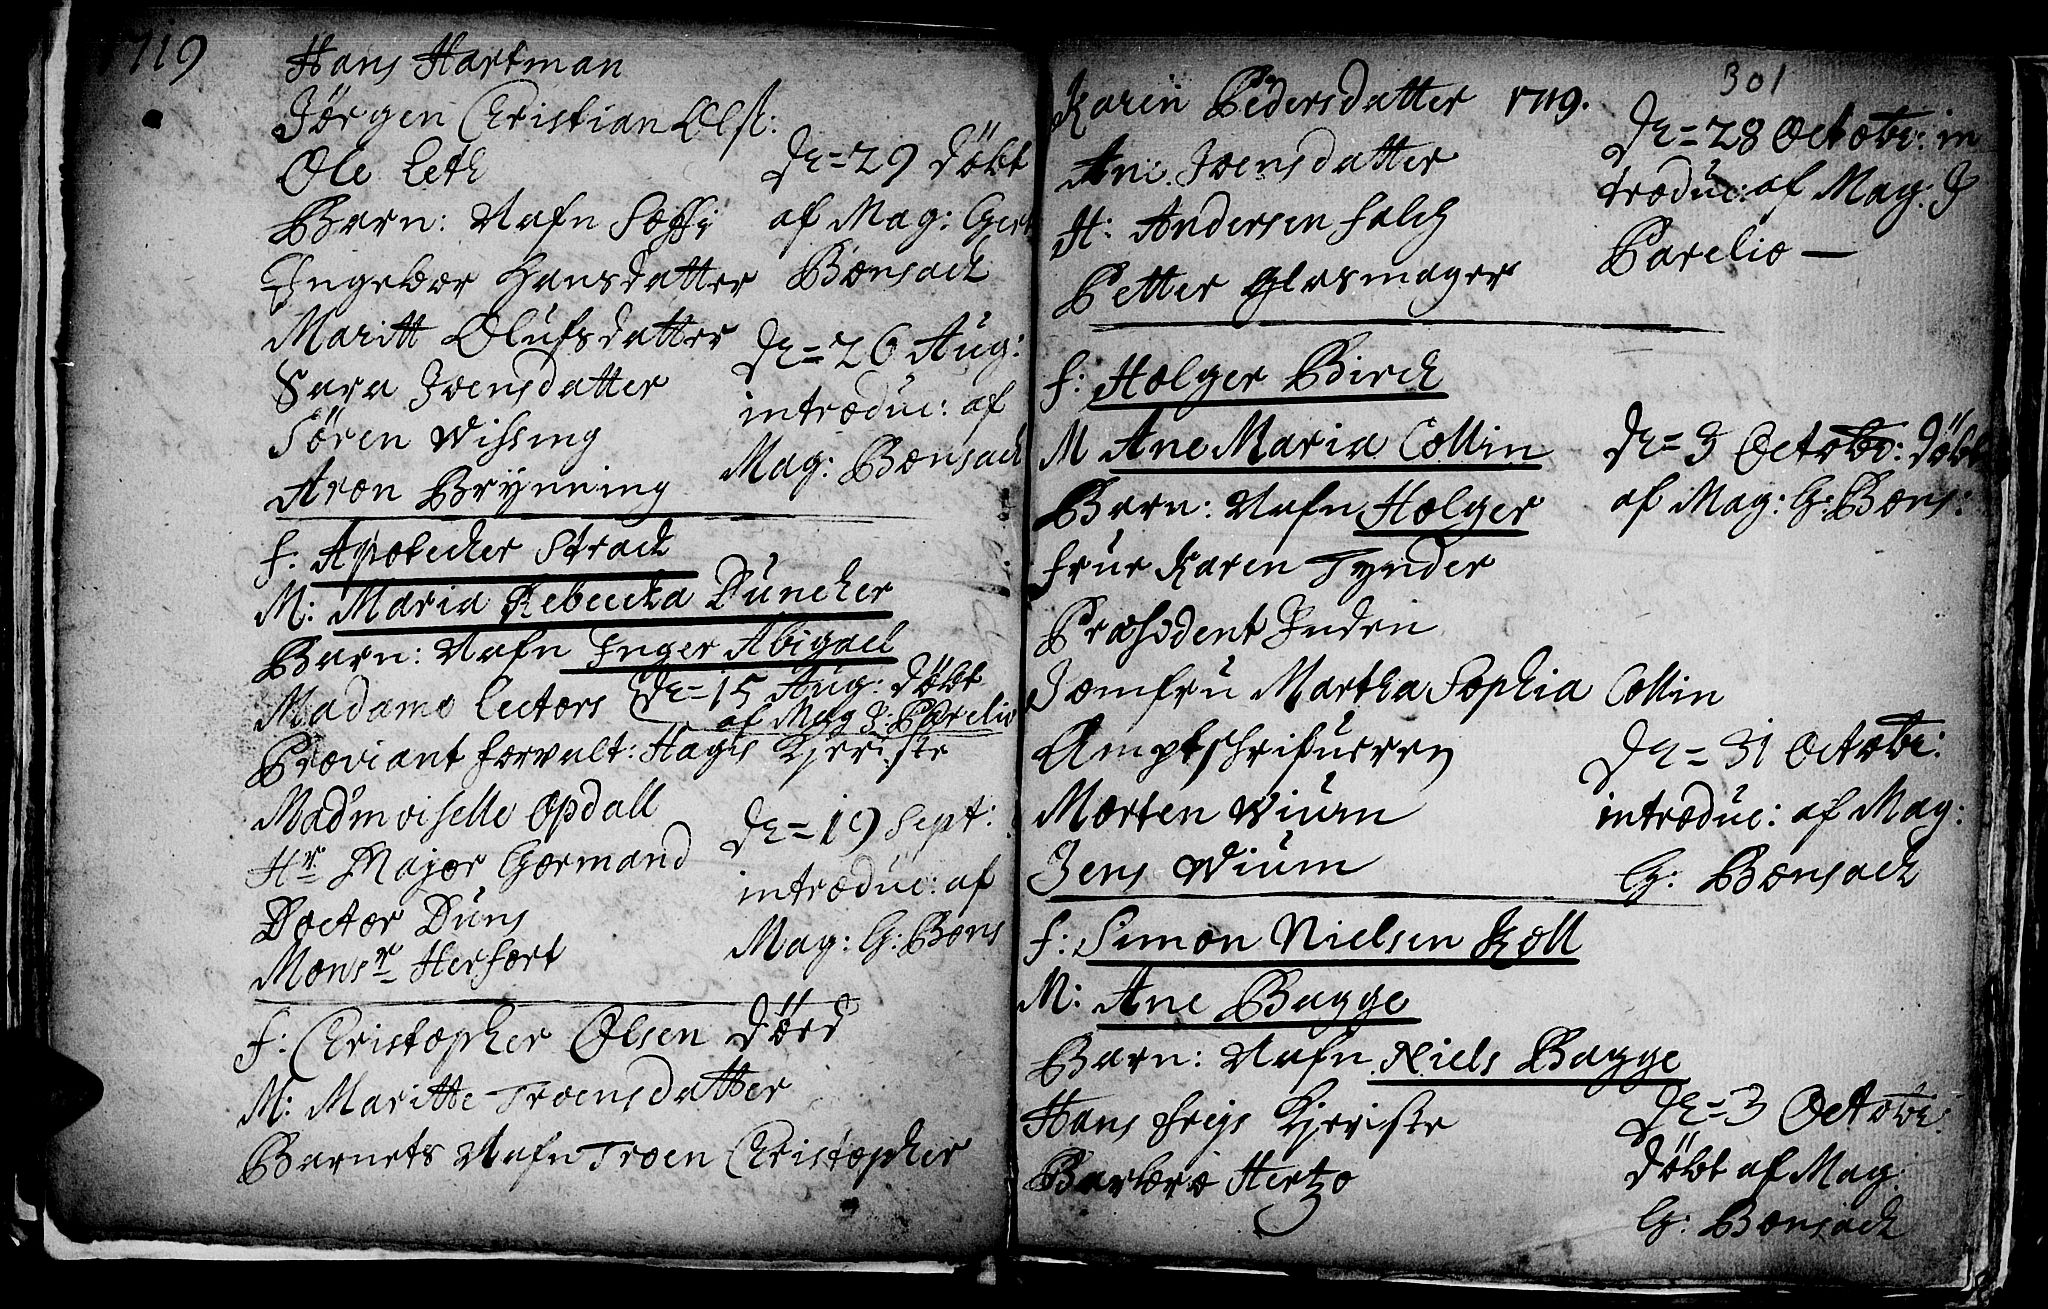 1719
Hans Hartman
Jørgen Christian Olsl:
Ole Leth
Barn: Nafn Soffi
Ingebor Hansdatter
Maritt Olufsdatter
Sara Ivensdatter
Søren Wissing
Aron Brynning
De=29 døbt
af Mag: Gert
Bonsach
De=26 Aug:
introduc: af
Mag: Bonsach
F: Apotecher Strach
M: Maria Rebecka Duncher
Barn: Nafn Inger Abigael
Madame Lectors
De=15 Aug: døbt
af Mag J: Parelio
Proviant forvalt: Hagis Kjeriste
Mad'moiselle Opdall
Hr Major Gormand
Doctor Duns
Monsr Herfort
De=19 Sept:
introduc: af
Mag: G: Bons
F: Christopher Olsen Dørd
M: Maritte Troensdatter
Barnets Nafn Troen Christopher
301
Karen Pedersdatter 1719.
Ane Ivensdatter
H: Andersen Falch
Petter Glasmager
De=28 Octobr: in
troduc: af Mag: J
Parelio —
F: Holger Birch
M Ane Maria Collin
Barn: Nafn Holger
Frue Karen Tynder
Præsident
Jomfru Martha Sophia Collin
Amptschrifueren
Morten Wium
Jens Wium
De=3 Octobr: døbt
af Mag: G: Bons:
De=31 Octobr:
introduc: af Mag:
G: Bonsach
F: Simon Nielsen Koll
M: Ane Bagge
Barn: Nafn Niels Bagge
Hans Freis Kjeriste
Barbara Hertzo
De=3 Octobr:
døbt af Mag:
G: Bonsach